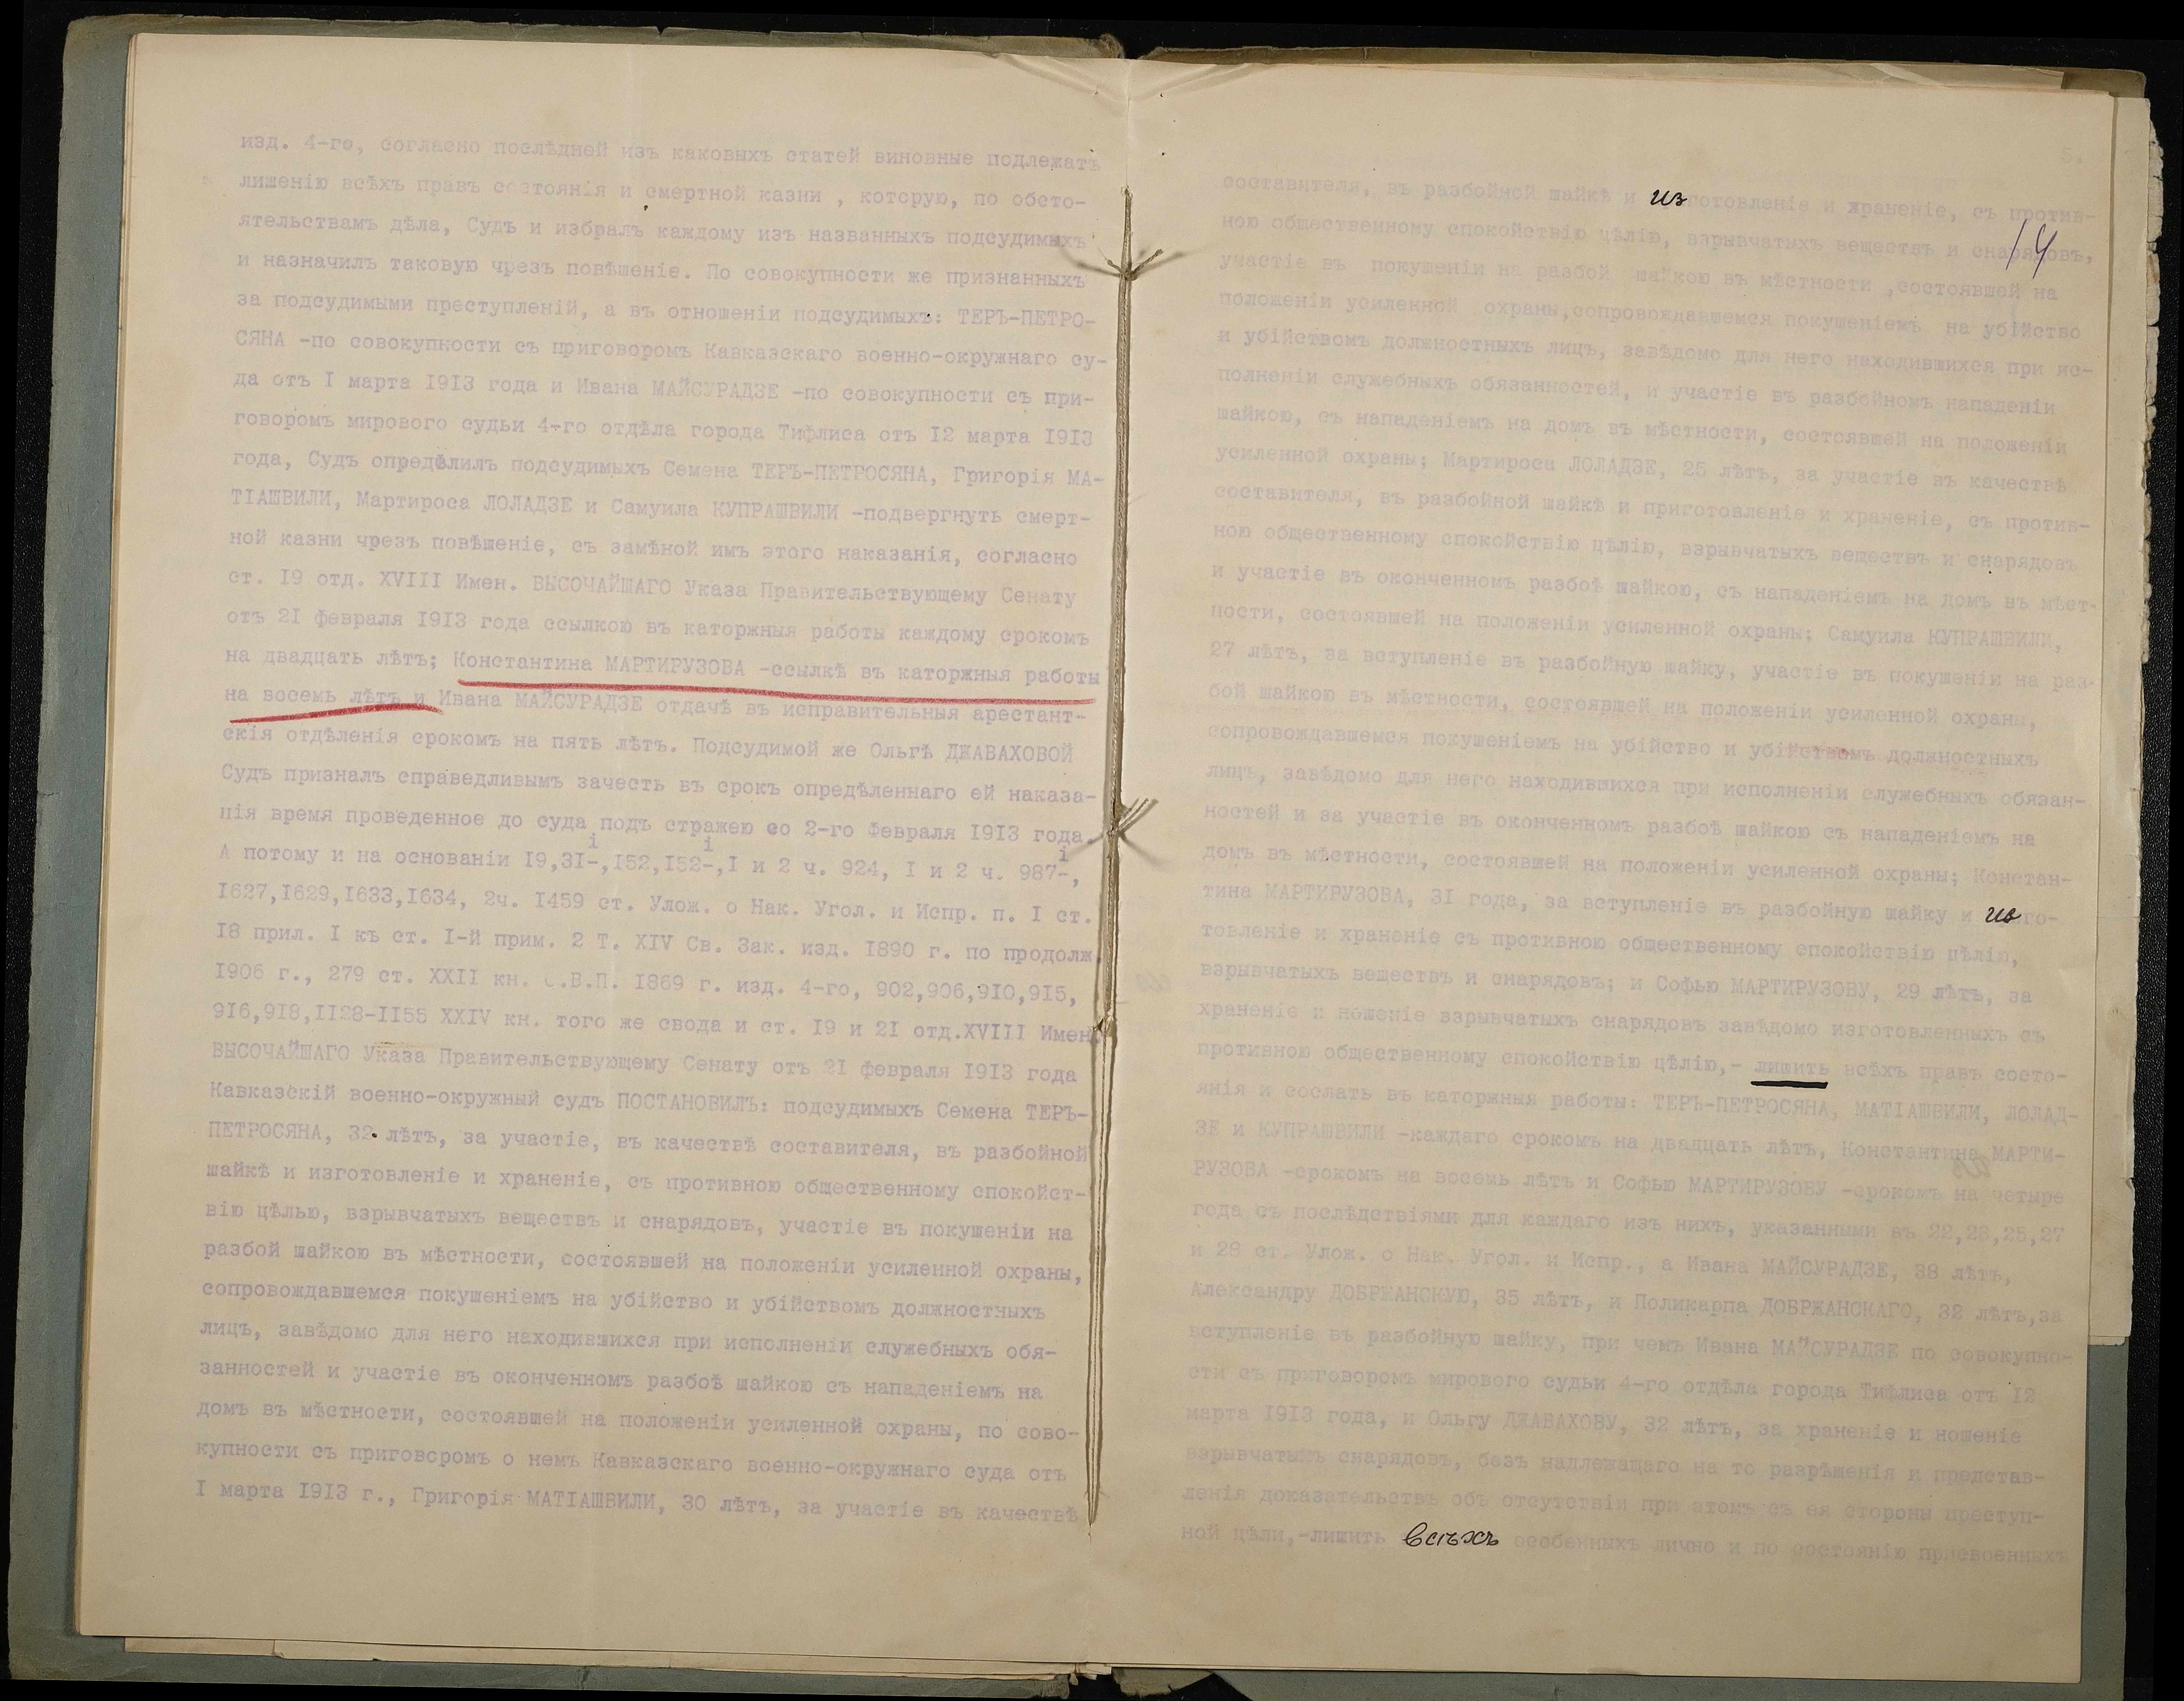 изд. 4-го, согласно послѣдней изъ каковыхъ статей виновные подлежатъ
лишенію всѣхъ правъ состоянія и смертной казни , которую, по обсто-
ятельствамъ дѣла, Судъ и избралъ каждому изъ названныхъ подсудимыхъ
и назначилъ таковую чрезъ повѣшеніе. По совокупности же признанныхъ
за подсудимыми преступленій, а въ отношеніи подсудимыхъ: ТЕРЪ-ПЕТРО-
СЯНА -по совокупности съ приговоромъ Кавказскаго военно-окружнаго су-
да отъ I марта I9I3 года и Ивана МАЙСУРАДЗЕ -по совокупности съ при-
говоромъ мирового судьи 4-го отдѣла города Тифлиса отъ I2 марта I9I3
года, Судъ опредѣлилъ подсудимыхъ Семена ТЕРЪ-ПЕТРОСЯНА, Григорія МА-
ТІАШВИЛИ, Мартироса ЛОЛАДЗЕ и Самуила КУПРАШВИЛИ -подвергнуть смерт-
ной казни чрезъ повѣшеніе, съ замѣной имъ этого наказанія, согласно
ст. I9 отд. XVIII Имен. ВЫСОЧАЙШАГО Указа Правительствующему Сенату
отъ 2I февраля I9I3 года ссылкою въ каторжныя работы каждому срокомъ
на двадцать лѣтъ; Константина МАРТИРУЗОВА -ссылкѣ въ каторжныя работы
на восемь лѣтъ и Ивана МАЙСУРАДЗЕ отдачѣ въ исправительныя арестант-
скія отдѣленія срокомъ на пять лѣтъ. Подсудимой же Ольгѣ ДЖАВАХОВОЙ
Судъ призналъ справедливымъ зачесть въ срокъ опредѣленнаго ей наказа-
нія время проведенное до суда подъ стражею со 2-го февраля I9I3 года.
А потому и на основаніи I9,3I-і,I52,I52-і,I и 2 ч. 924, I и 2 ч. 987-і,
I627,I629,I633,I634, 2ч. I459 ст. Улож. о Нак. Угол. и Испр. п. I ст.
I8 прил. I къ ст. I-й прим. 2 Т. XIV Св. Зак. изд. I890 г. по продолж.
I906 г., 279 ст. XXII кн. С.В.П. I869 г. изд. 4-го, 902,906,9I0,9I5,
9I6,9I8,II28-II55 XXIV кн. того же свода и ст. I9 и 2I отд.XVIII Имен.
ВЫСОЧАЙШАГО Указа Правительствующему Сенату отъ 2I февраля I9I3 года
Кавказскій военно-окружный судъ ПОСТАНОВИЛЪ: подсудимыхъ Семена ТЕРЪ-
ПЕТРОСЯНА, 32 лѣтъ, за участіе, въ качествѣ составителя, въ разбойной
шайкѣ и изготовленіе и храненіе, съ противною общественному спокойст-
вію цѣлью, взрывчатыхъ веществъ и снарядовъ, участіе въ покушеніи на
разбой шайкою въ мѣстности, состоявшей на положеніи усиленной охраны,
сопровождавшемся покушеніемъ на убійство и убійствомъ должностныхъ
лицъ, завѣдомо для него находившихся при исполненіи служебныхъ обя-
занностей и участіе въ оконченномъ разбоѣ шайкою съ нападеніемъ на
домъ въ мѣстности, состоявшей на положеніи усиленной охраны, по сово-
купности съ приговоромъ о немъ Кавказскаго военно-окружнаго суда отъ
I марта I9I3 г., Григорія МАТІАШВИЛИ, 30 лѣтъ, за участіе въ качествѣ
5.
14
составителя, въ разбойной шайкѣ и изготовленіе и храненіе, съ против-
ною общественному спокойствію цѣлію, взрывчатыхъ веществъ и снарядовъ,
участіе въ покушеніи на разбой шайкою въ мѣстности ,состоявшей на
положеніи усиленной охраны,сопровождавшемся покушеніемъ на убійство
и убійствомъ должностныхъ лицъ, завѣдомо для него находившихся при ис-
полненіи служебныхъ обязанностей, и участіе въ разбойномъ нападеніи
шайкою, съ нападеніемъ на домъ въ мѣстности, состоявшей на положеніи
усиленной охраны; Мартироса ЛОЛАДЗЕ, 25 лѣтъ, за участіе въ качествѣ
составителя, въ разбойной шайкѣ и приготовленіе и храненіе, съ против-
ною общественному спокойствію цѣлію, взрывчатыхъ веществъ и снарядовъ
и участіе въ оконченномъ разбоѣ шайкою, съ нападеніемъ на домъ въ мѣст-
ности, состоявшей на положеніи усиленной охраны; Самуила КУПРАШВИЛИ,
27 лѣтъ, за вступленіе въ разбойную шайку, участіе въ покушеніи на раз-
бой шайкою въ мѣстности, состоявшей на положеніи усиленной охраны,
сопровождавшемся покушеніемъ на убійство и убійствомъ должностныхъ
лицъ, завѣдомо для него находившихся при исполненіи служебныхъ обязан-
ностей и за участіе въ оконченномъ разбоѣ шайкою съ нападеніемъ на
домъ въ мѣстности, состоявшей на положеніи усиленной охраны; Констан-
тина МАРТИРУЗОВА, 3I года, за вступленіе въ разбойную шайку и изго-
товленіе и храненіе съ противною общественному спокойствію цѣлію,
взрывчатыхъ веществъ и снарядовъ; и Софью МАРТИРУЗОВУ, 29 лѣтъ, за
храненіе и ношеніе взрывчатыхъ снарядовъ завѣдомо изготовленныхъ съ
противною общественному спокойствію цѣлію,- лишить всѣхъ правъ состо-
янія и сослать въ каторжныя работы: ТЕРЪ-ПЕТРОСЯНА, МАТІАШВИЛИ, ЛОЛАД-
ЗЕ и КУПРАШВИЛИ -каждаго срокомъ на двадцать лѣтъ, Константина МАРТИ-
РУЗОВА -срокомъ на восемь лѣтъ и Софью МАРТИРУЗОВУ -срокомъ на четыре
года съ послѣдствіями для каждаго изъ нихъ, указанными въ 22,23,25,27
и 28 ст. Улож. о Нак. Угол. и Испр., а Ивана МАЙСУРАДЗЕ, 38 лѣтъ,
Александру ДОБРЖАНСКУЮ, 35 лѣтъ, и Поликарпа ДОБРЖАНСКАГО, 32 лѣтъ,за
вступленіе въ разбойную шайку, при чемъ Ивана МАЙСУРАДЗЕ по совокупно-
сти съ приговоромъ мирового судьи 4-го отдѣла города Тифлиса отъ I2
марта I9I3 года, и Ольгу ДЖАВАХОВУ, 32 лѣтъ, за храненіе и ношеніе
взрывчатыхъ снарядовъ, безъ надлежащаго на то разрѣшенія и представ-
ленія доказательствъ объ отсутствіи при этомъ съ ея стороны преступ-
ной цѣли,-лишить всѣхъ особенныхъ лично и по состоянію присвоенныхъ